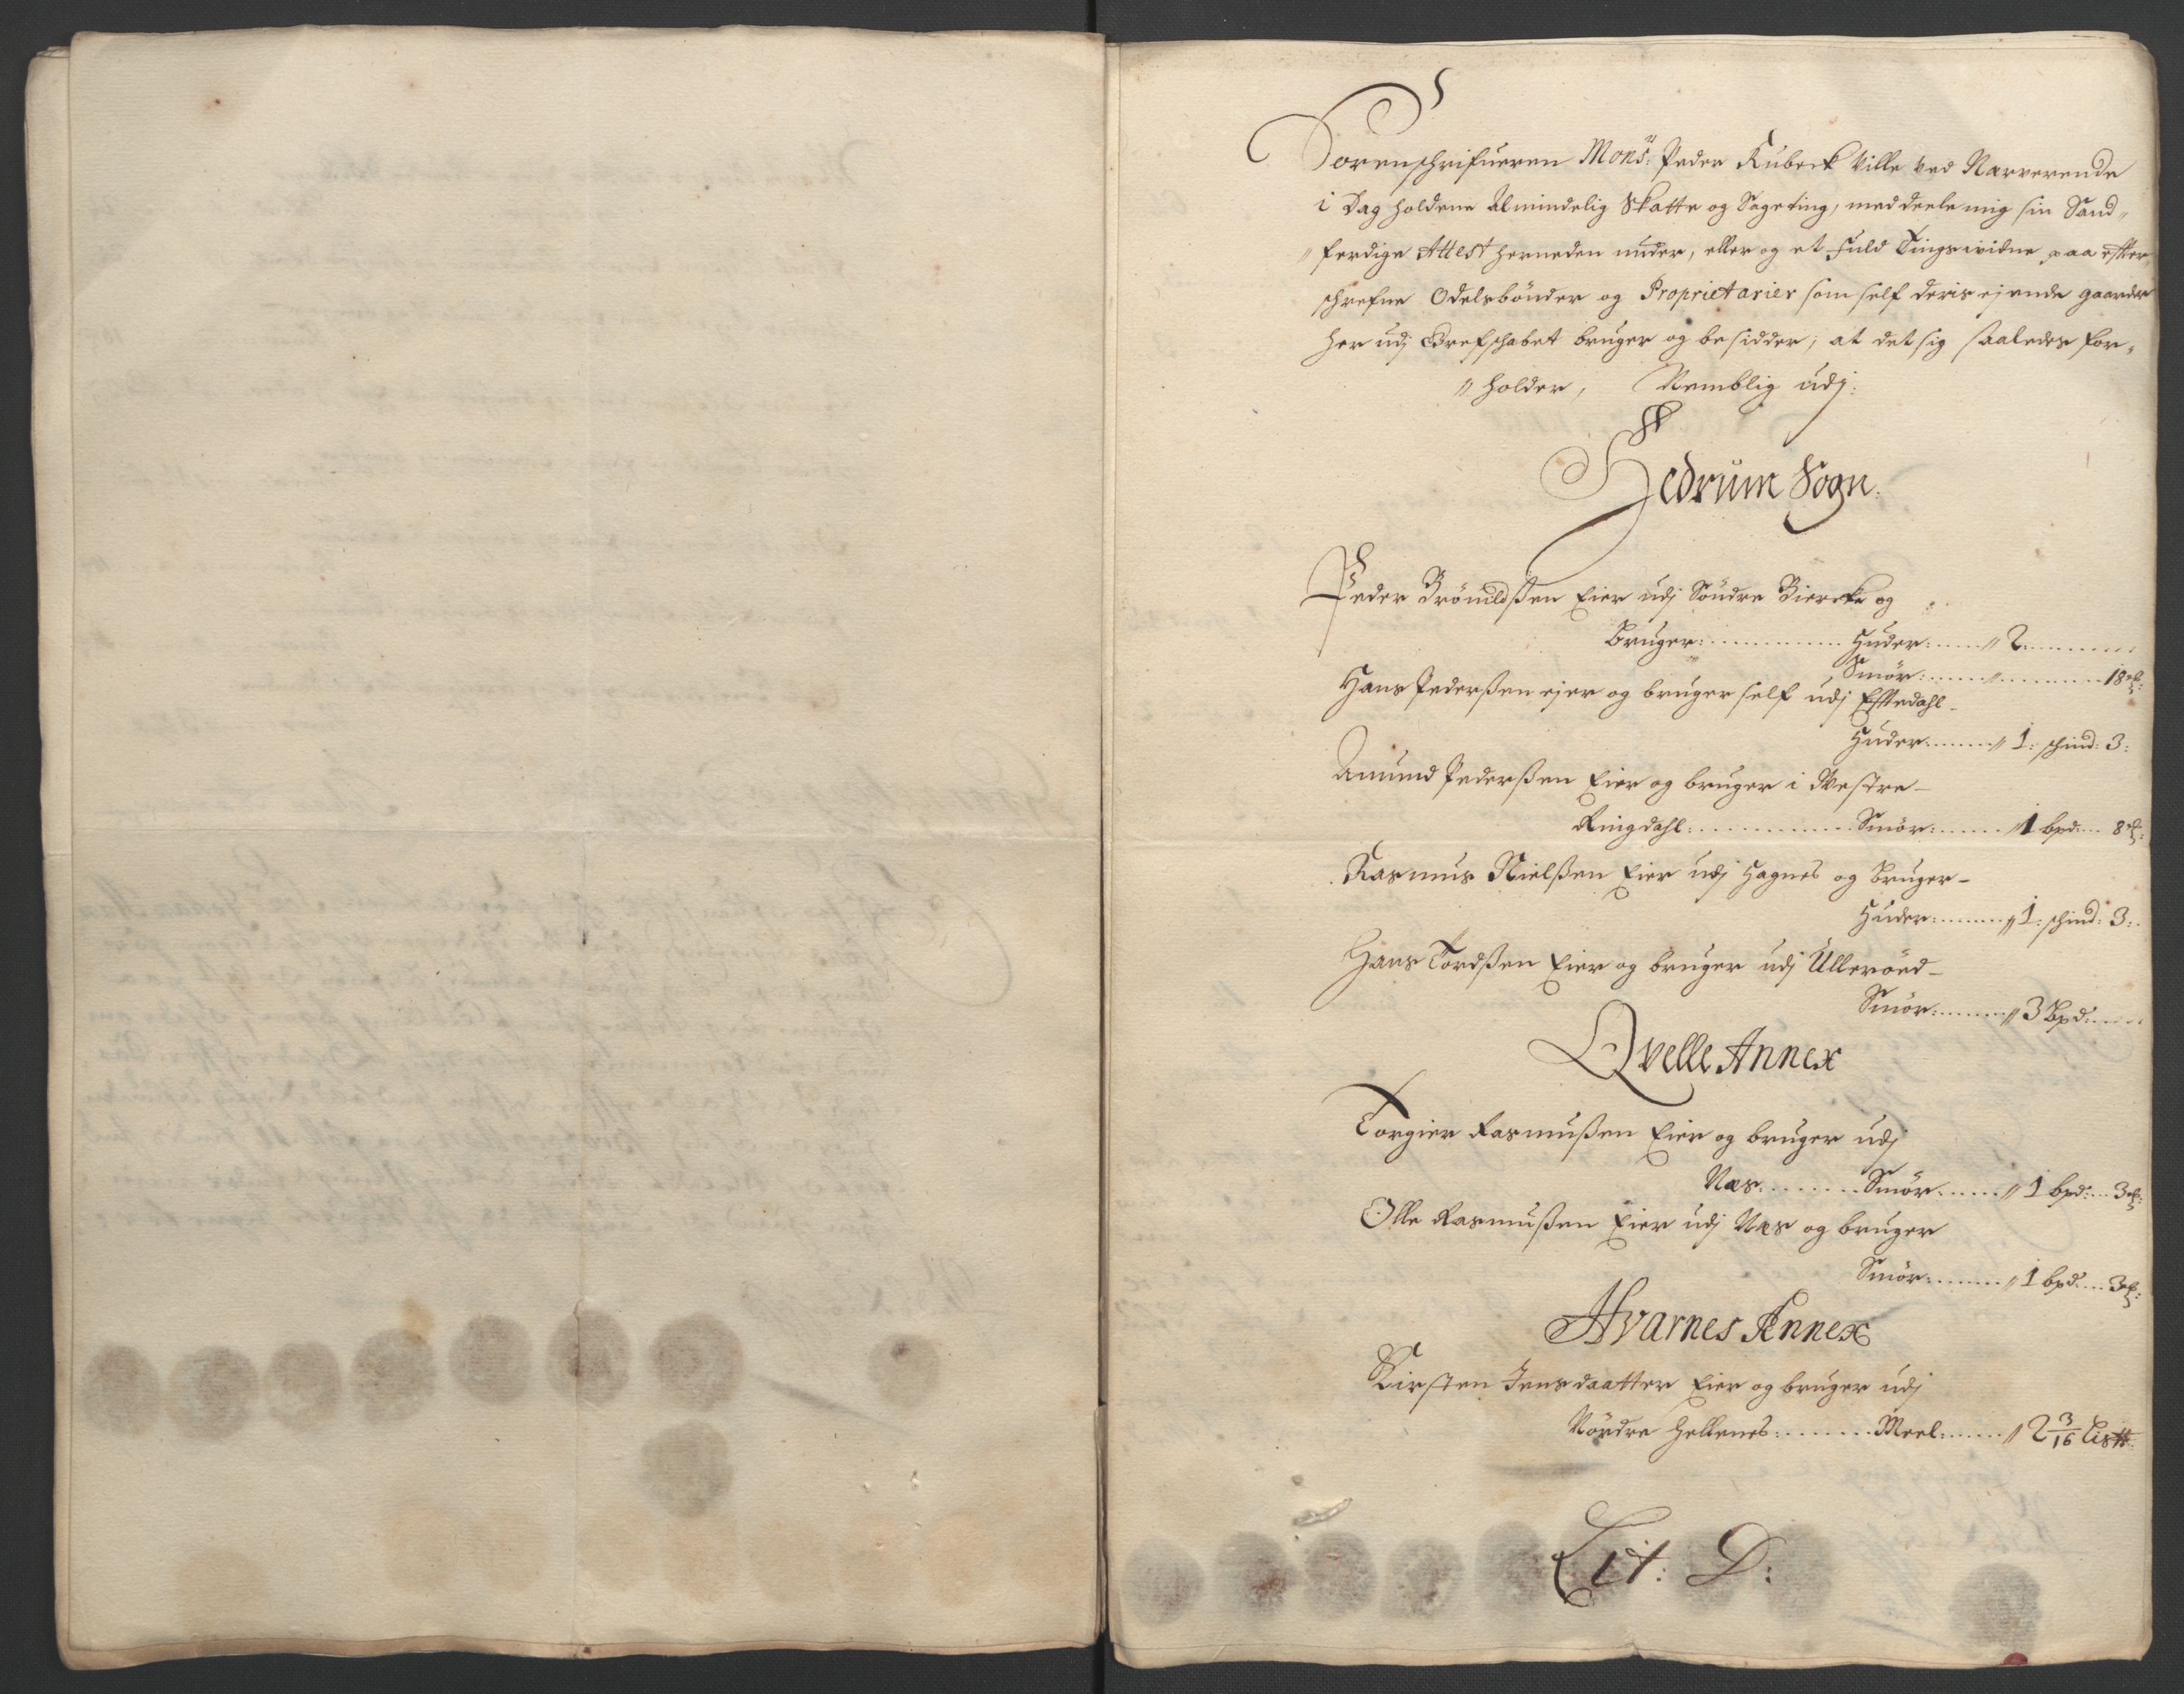 Sorenschrifueren Mons: Peder Kubeck Ville ved Nærverende
i Dag holdene Almindelig Skatte og Sageting, meddeele mig sin Sand„
„ferdige Attest herneden under, eller og et fuld Tingswidne paa effter„
schrefne Odelsbönder og Proprietarier som self deris ejende gaarder
her udj Grefschabet bruger og besidder, at det sig saaledes for„
„holder, Nemblig udj:
Hedrum Sogn.
Peder Brönildßen Eier udj Söndre Biercke og
Bruger: Huder: „ 2
Smör: „ 18 ℔:
Hans Pederßen ejer og bruger self udj Efftedahl
Huder „ 1: schind: 3:
Amund Pederßen Eier og bruger i Westre
Ringdahl: Smör: „ 1 bpd: 8 ℔:
Rasmus Nielßen Eier udj Hagnes og Bruger
Huder: „ 1: schind: 3:
Hans Tordßen Eier og bruger udj Ulleröed
Smör: „ 3 Bpd:
Qvelle Annex
Torgier Rasmußen Eier og bruger udj
Næs Smör „ 1 bpd: 3 ℔:
Olle Rasmußen Eier udj Næs og bruger
Smör: „ 1 bpd: 3 ℔:
Hvarnes Annex
Kirsten Jensdaatter Eier og bruger udj
Nördre Hellenes: Meel: „ 2 3/16 Lis℔
Lit: D: